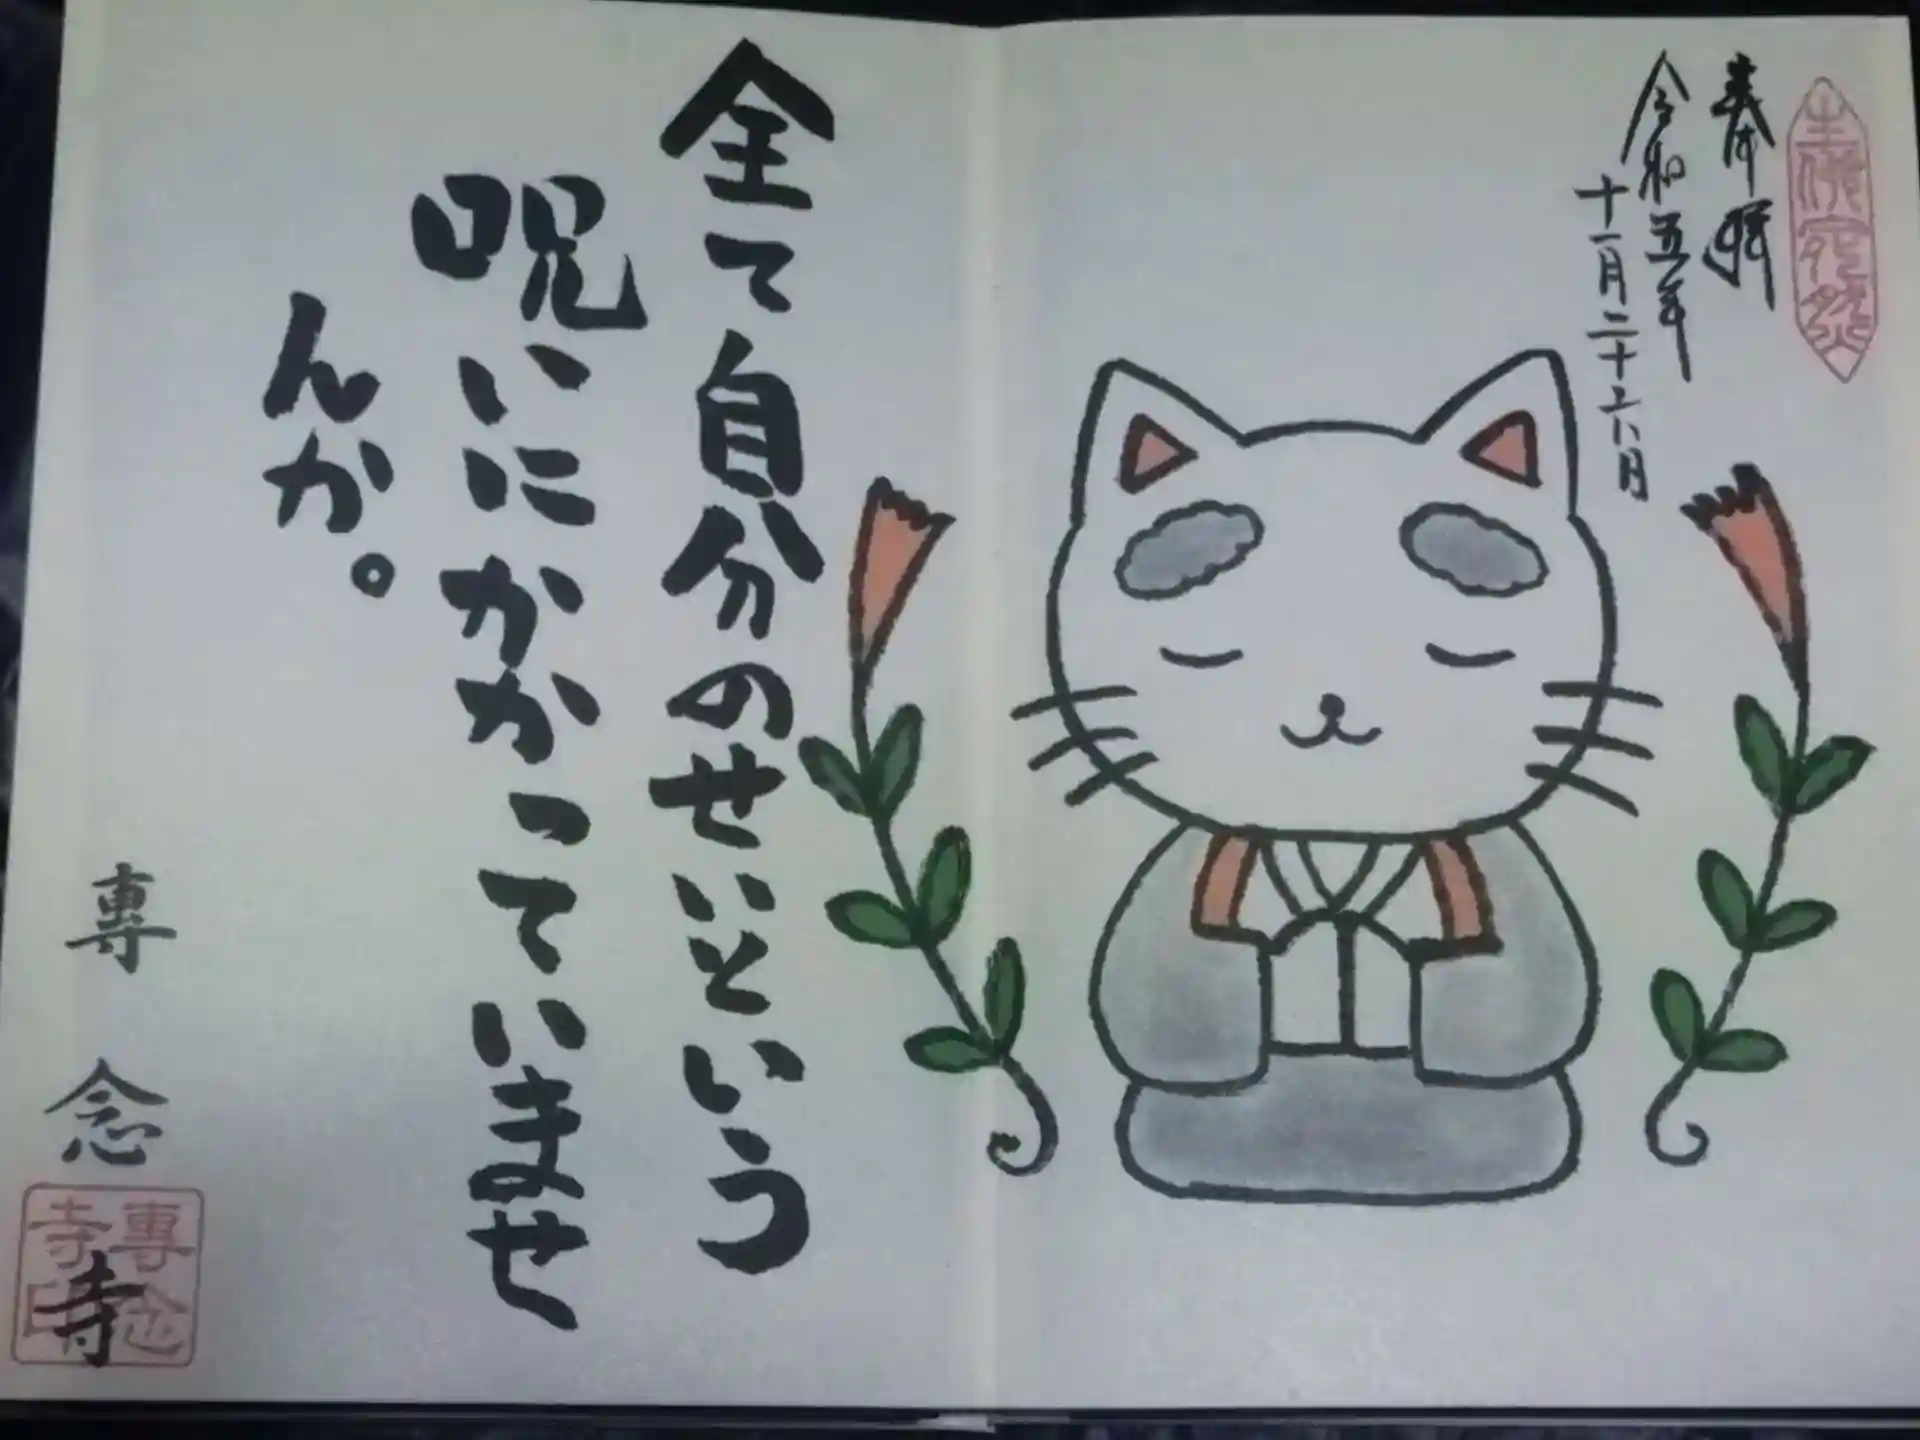 奉拝
令和五年
十一月二十六日
全て自分のせいという
呪いにかかっていませ
んか。
專念寺
專念寺印